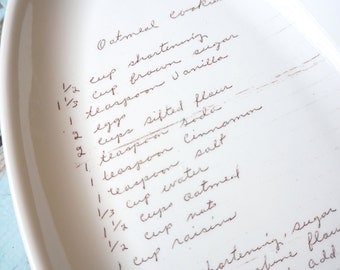 Oatmeal cookie
1/2 cup shortening
1 1/3 cup brown sugar
1 teaspoon vanilla
2 eggs
2 cups sifted flour
1 teaspoon soda
1 teaspoon cinnamon
1 teaspoon salt
1/3 cup water
1 1/2 cups oatmeal
1/2 cup nuts
1 cup raisins
shortening, sugar
flour
add